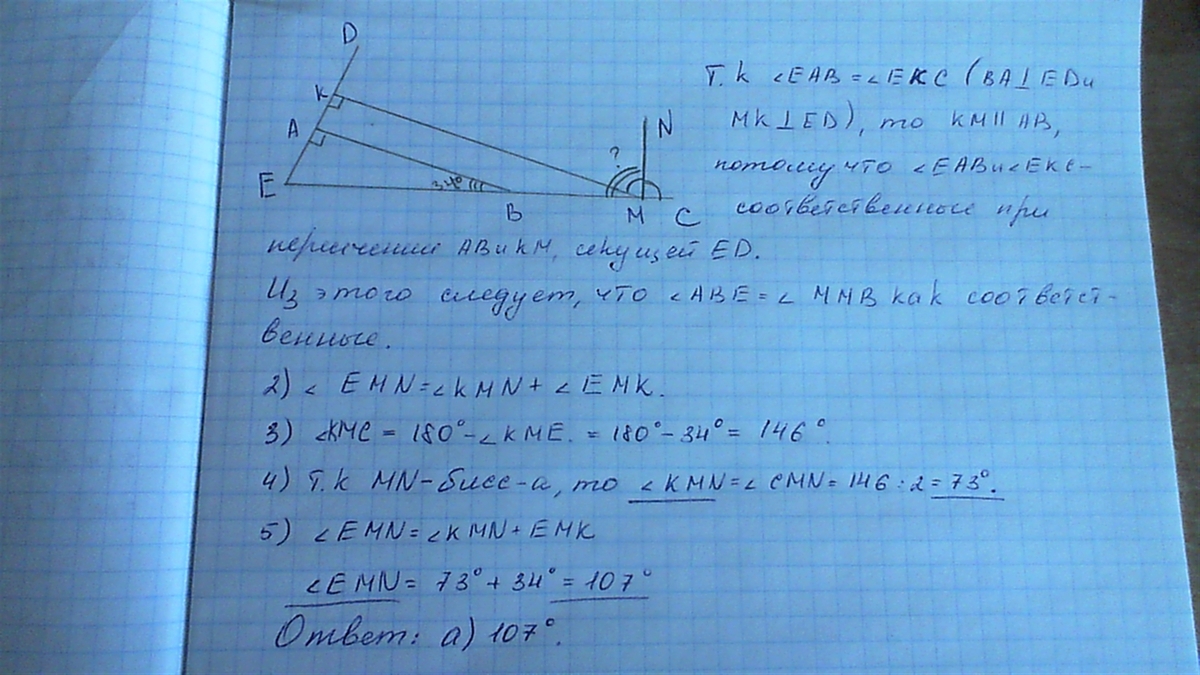 D
K
A
E
34°
B
?
M
N
C
Т.к ∠EAB=∠EKC (BA⊥ED и
MK⊥ED), то KM∥AB,
потому что ∠EAB и ∠EKC-
соответственные при
пересечении AB и KM, секущей ED.
Из этого следует, что ∠ABE=∠MMB как соответст-
венные.
2) ∠EMN=∠KMN+∠EMK.
3) ∠KMC = 180°-∠KME. = 180°-34° = 146°.
4) Т.к MN-бисс-а, то ∠KMN=∠CMN=146:2=73°.
5) ∠EMN=∠KMN+EMK
∠EMN= 73°+34°=107°
Ответ: а) 107°.